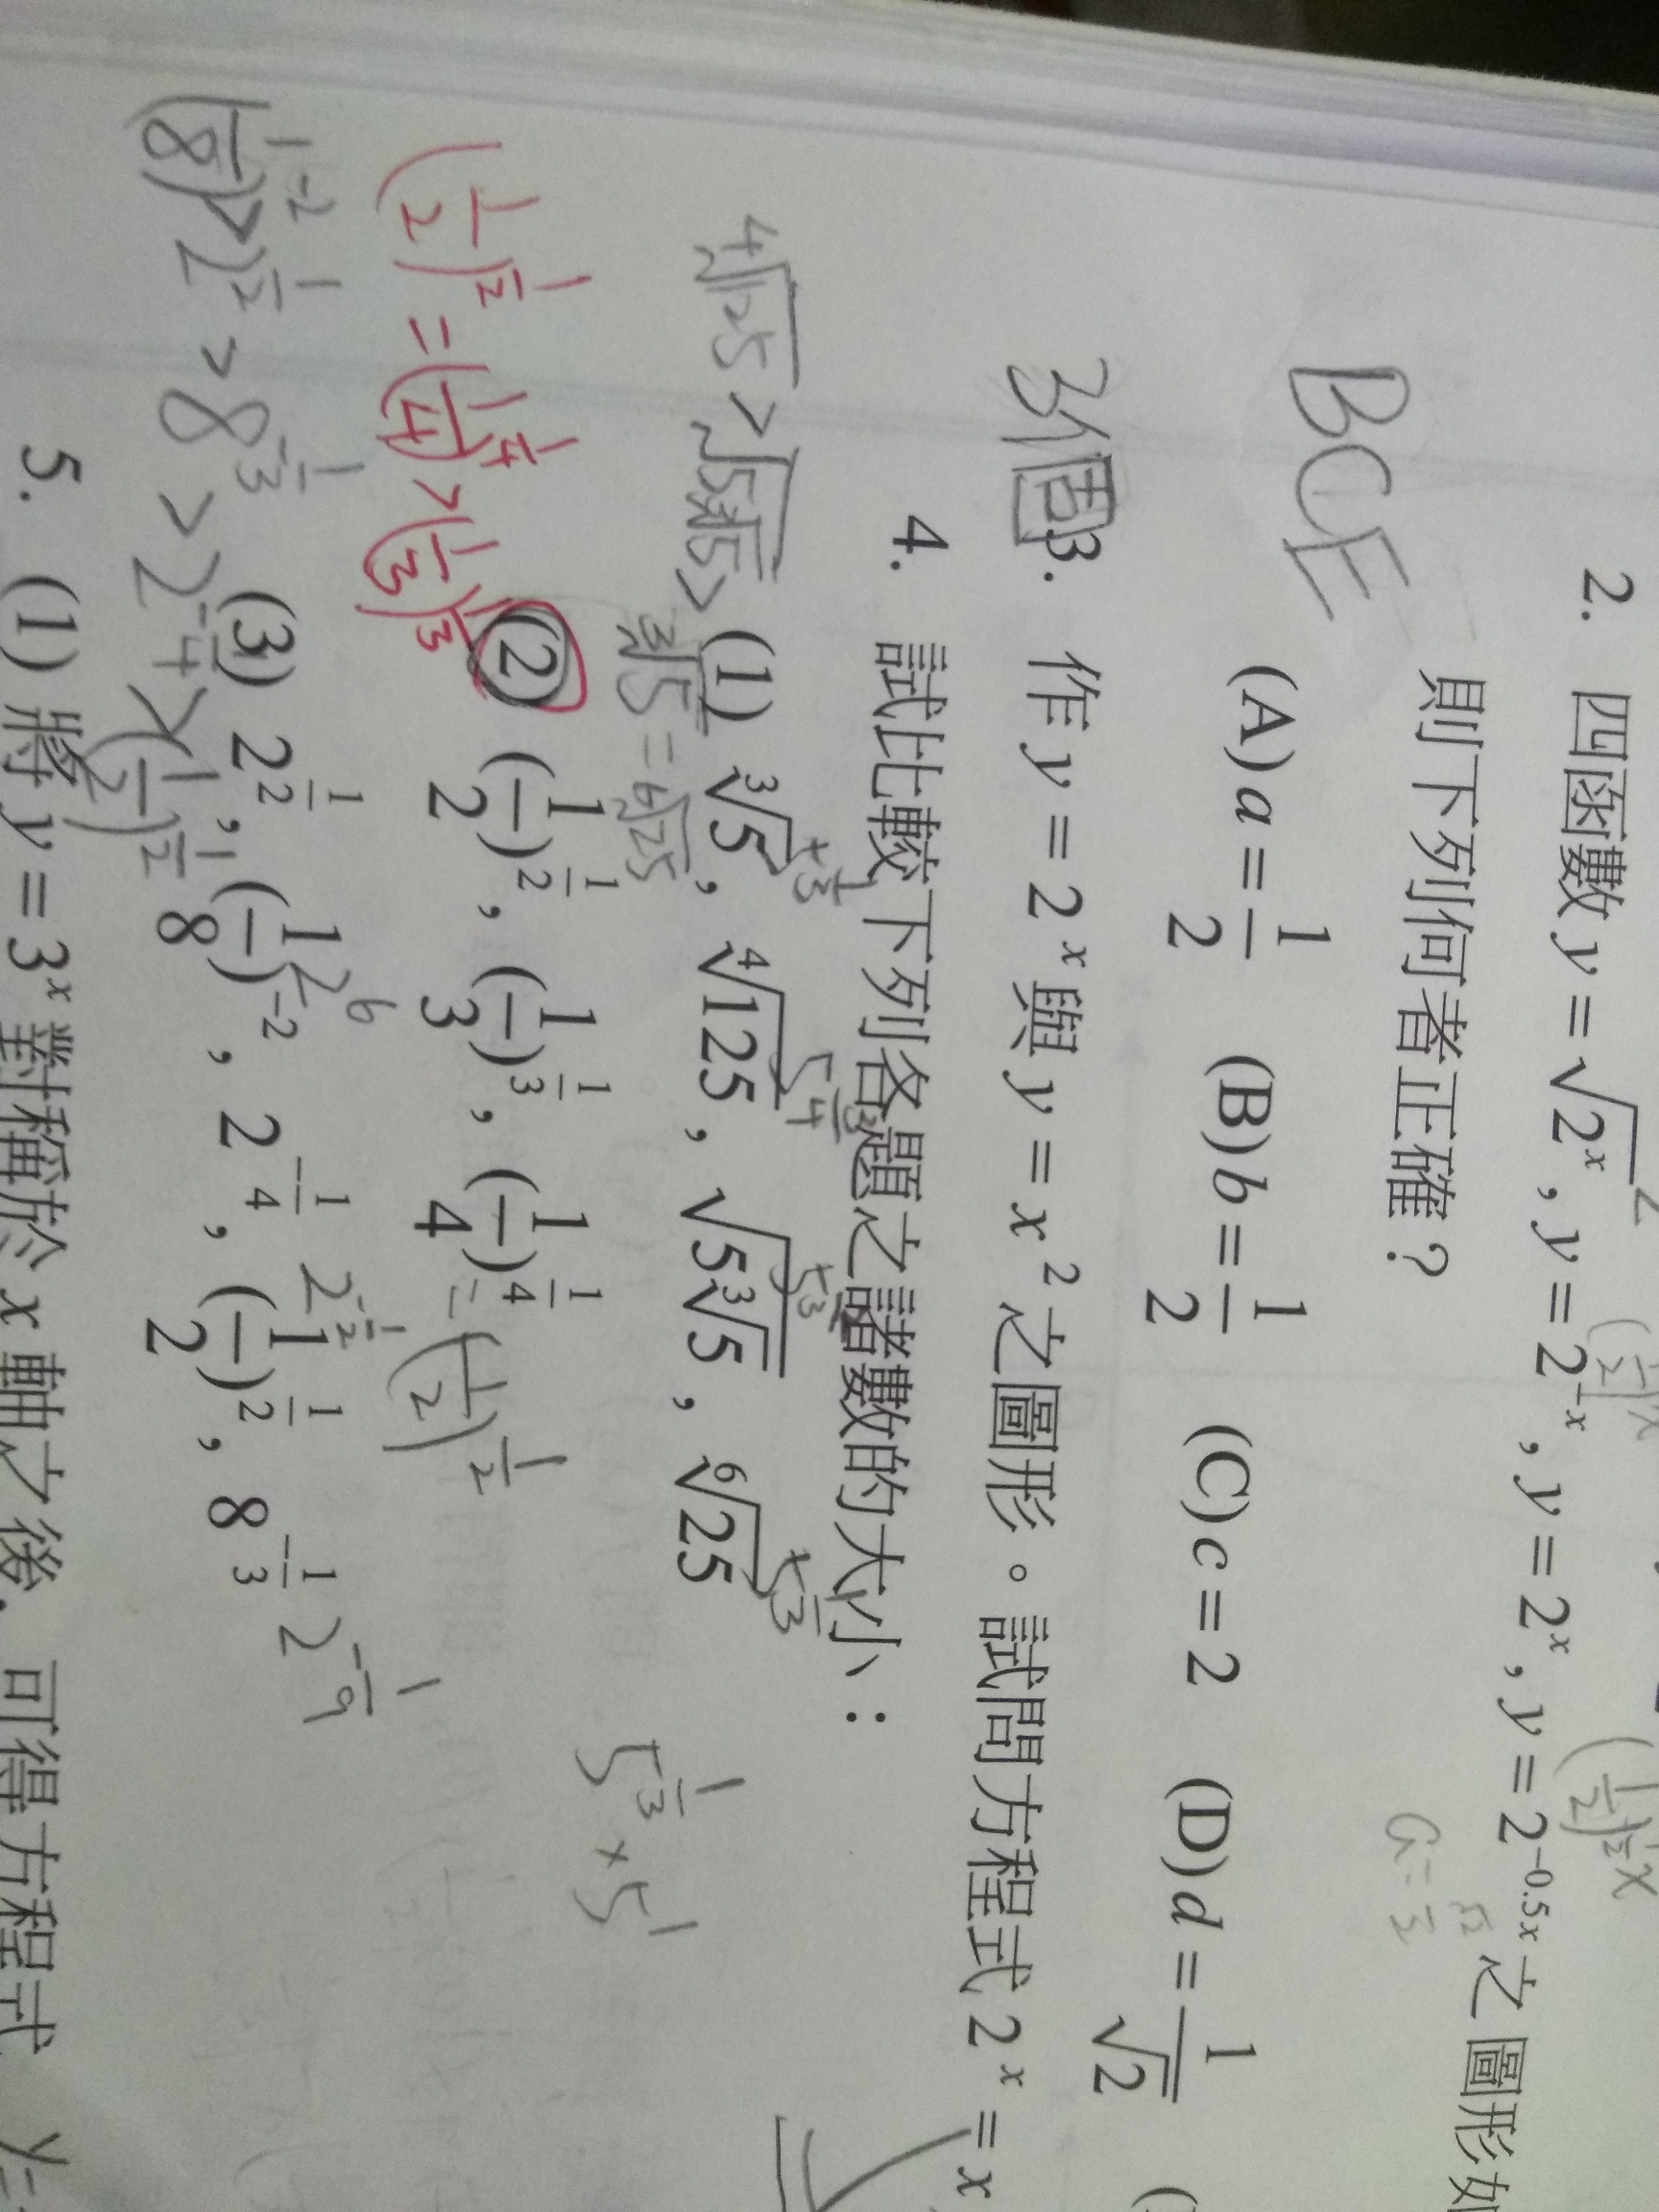 2. 四函數 y = √2ˣ , y = 2⁻ˣ , y = 2ˣ , y = 2⁻⁰·⁵ˣ 之圖形如
則下列何者正確？
BCE
(A) a = 1/2 (B) b = 1/2 (C) c = 2 (D) d = 1/√2
3個
3. 作 y = 2ˣ 與 y = x² 之圖形。試問方程式 2ˣ = x
4. 試比較下列各題之諸數的大小：
(1) ³√5 , ⁴√125 , √(5³√5) , ⁶√25
⁴√125 > √(5³√5) > ³√5 = ⁶√25
5^(1/3) × 5^1
(2) (1/2)^(1/2) , (1/3)^(1/3) , (1/4)^(1/4) = (1/2)^(1/2)
(1/2)^(1/2) = (1/4)^(1/4) > (1/3)^(1/3)
(3) 2^(1/2) , (1/8)^(-2) , 2^(-1/4) , (1/2)^(1/2) , 8^(-1/3)
(1/8)^(-2) > 2^(1/2) > 8^(-1/3) > 2^(-1/4) > (1/2)^(1/2)
5. (1) 將 y = 3ˣ 對稱於 x 軸之後，可得方程式 y=